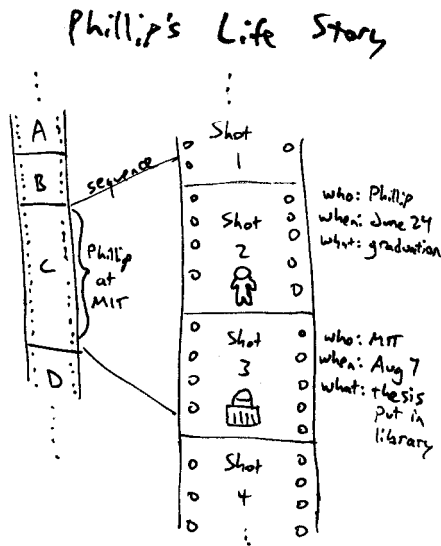 Phillip's Life Story
A
B
C
D
sequence
Phillip
at
MIT
Shot
1
Shot
2
who: Phillip
when: June 24
what: graduation
Shot
3
who: MIT
when: Aug 7
what: thesis
put in
library
Shot
4